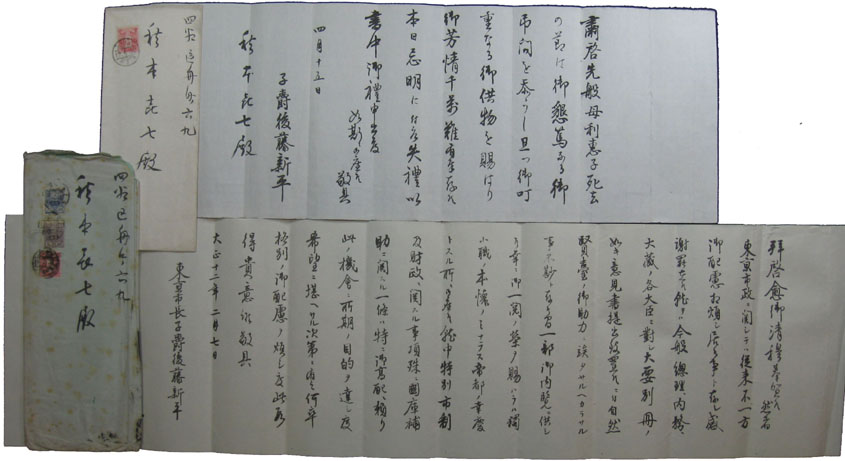 肅啓先般母利恵子死去
の節は御懇篤なる御
弔問を忝うし且つ御叮
重なる御供物を賜はり
御芳情千萬難有奉存候
本日忌明に付乍失禮以
書中御禮申上度
如斯御座候 敬具
四月十五日
子爵後藤新平
秋本喜七殿
四谷區舟町六九
秋本喜七殿
拝啓愈御清穆奉賀候然者
東京市政ニ関シテハ従来不一方
御配慮相煩シ居候事ト存シ感
謝罷在候処今般總理内務
大蔵ノ各大臣ニ對シ大要別冊ノ
如キ意見書提出致置候ニ付自然
賢臺ノ御助力ニ俟タサルヘカラサル
事不尠ト存候間一部御内覧ニ供シ
候幸ニ御一閲ノ榮ヲ賜ハラハ獨
小職ノ本懐ノミナラス帝都ノ幸慶
トスル所ニ有之候就中特別市制
及財政ニ関スル事項殊ニ国庫補
助ニ関スル一 特ニ御高配ヲ
此ノ機会ニ所期ノ目的ヲ達シ度
希望ニ堪ヘサル次第ニ有之何卒
格別ノ御配慮ヲ煩シ度此段
得貴意候敬具
大正十二年二月七日
東京市長子爵後藤新平
四谷區舟町六九
秋本喜七殿